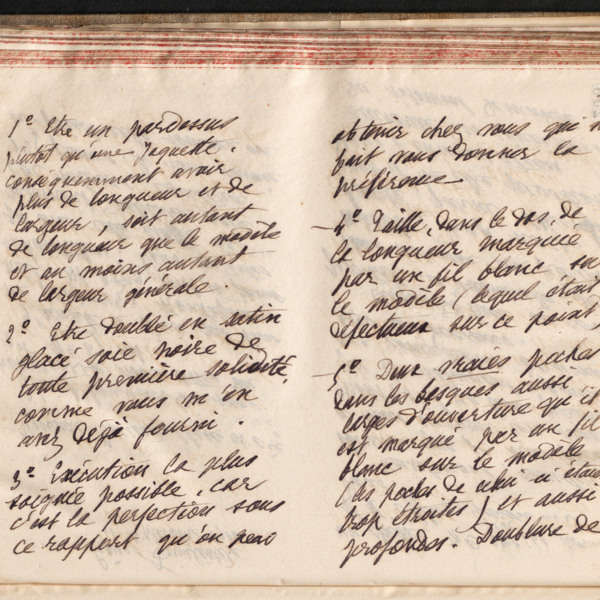 1º Etre un pardessus
plutot qu'une Jaquette.
conséquemment avoir
plus de longueur et de
largeur, soit autant
de longueur que le modèle
et au moins autant
de largeur générale.
2º Etre doublé en satin
glacé soie noire de
toute première solidité,
comme vous m'en
avez déjà fourni.
3º Exécution la plus
soignée possible, car
c'est la perfection sous
ce rapport qu'on peut
obtenir chez vous qui m
fait vous donner la
préférence
4º Taille, dans le dos, de
la longueur marquée
par un fil blanc sur
le modèle (lequel était
défectueux sur ce point)
5º Deux vraies poches
dans les basques aussi
larges d'ouverture qu'il
est marqué par un fil
blanc sur le modèle
(les poches de celui ci étaient
trop étroites) et aussi
profondes. Doublure de